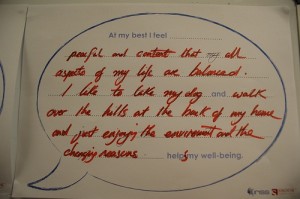 At my best I feel
peaful and content that all
aspects of my life are balanced.
I like to take my dog and walk
over the hills at the back of my house
and just enjoy the environment and the
changing seasons. help my well-being.